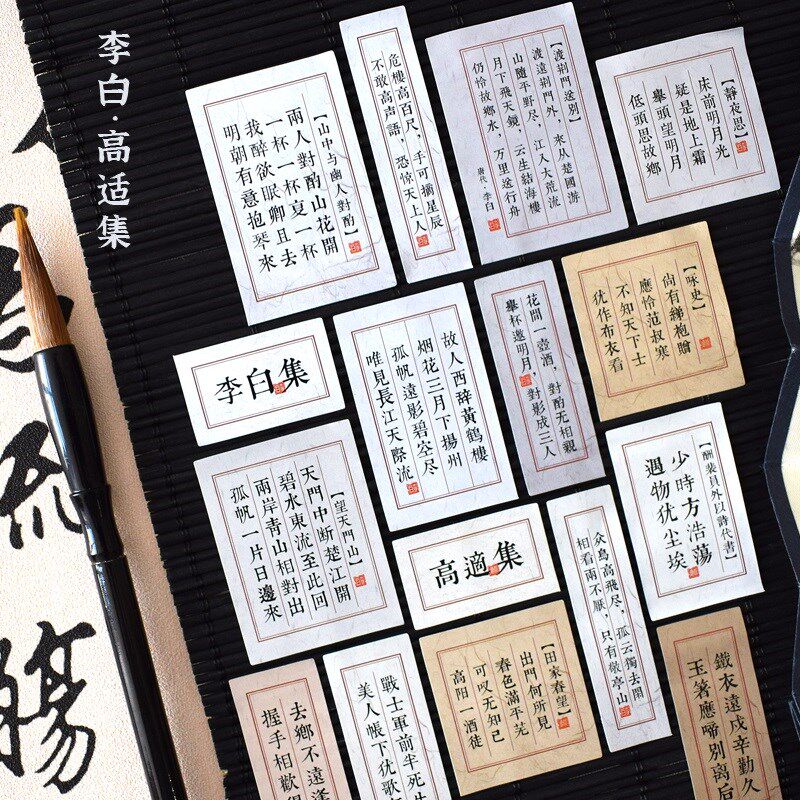 李白·高适集
【山中与幽人對酌】
兩人對酌山花開
一杯一杯复一杯
我醉欲眠卿且去
明朝有意抱琴來
危樓高百尺，手可摘星辰
不敢高声語，恐惊天上人
【渡荆門送别】
渡遠荆門外，來从楚國游
山隨平野尽，江入大荒流
月下飛天鏡，云生結海樓
仍怜故鄉水，万里送行舟
唐代·李白
【靜夜思】
床前明月光
疑是地上霜
舉頭望明月
低頭思故鄉
李白集
故人西辞黄鶴樓
烟花三月下揚州
孤帆遠影碧空尽
唯見長江天際流
花間一壺酒，對酌无相親
舉杯邀明月，對影成三人
【咏史】
尚有綈袍贈
應怜范叔寒
不知天下士
犹作布衣看
【望天門山】
天門中断楚江開
碧水東流至此回
兩岸青山相對出
孤帆一片日邊來
高適集
众鳥高飛尽，孤云獨去閑
相看兩不厭，只有敬亭山
【酬裴員外以詩代書】
少時方浩蕩
遇物犹尘埃
去鄉不遠逢
握手相歡得
戰士軍前半死生
美人帳下犹歌
【田家春望】
出門何所見
春色滿平芜
可叹无知己
高阳一酒徒
鐵衣遠戍辛勤久
玉箸應啼别离后